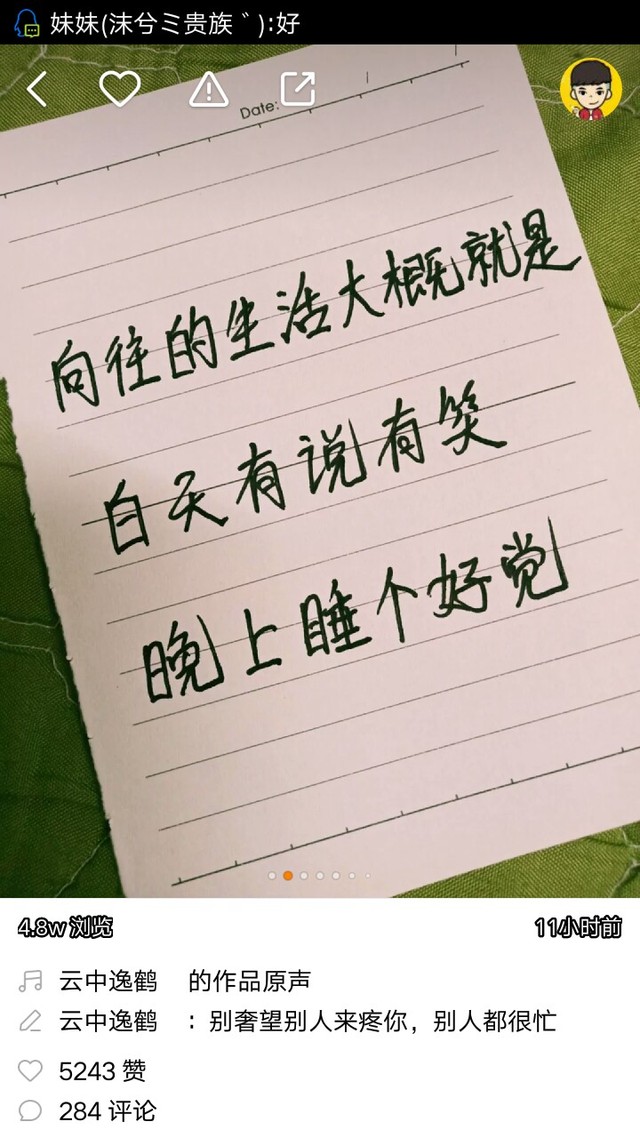 妹妹(沫兮ミ贵族゛):好
Date:
向往的生活大概就是
白天有说有笑
晚上睡个好觉
4.8w 浏览
11小时前
云中逸鹤 的作品原声
云中逸鹤 : 别奢望别人来疼你，别人都很忙
5243 赞
284 评论